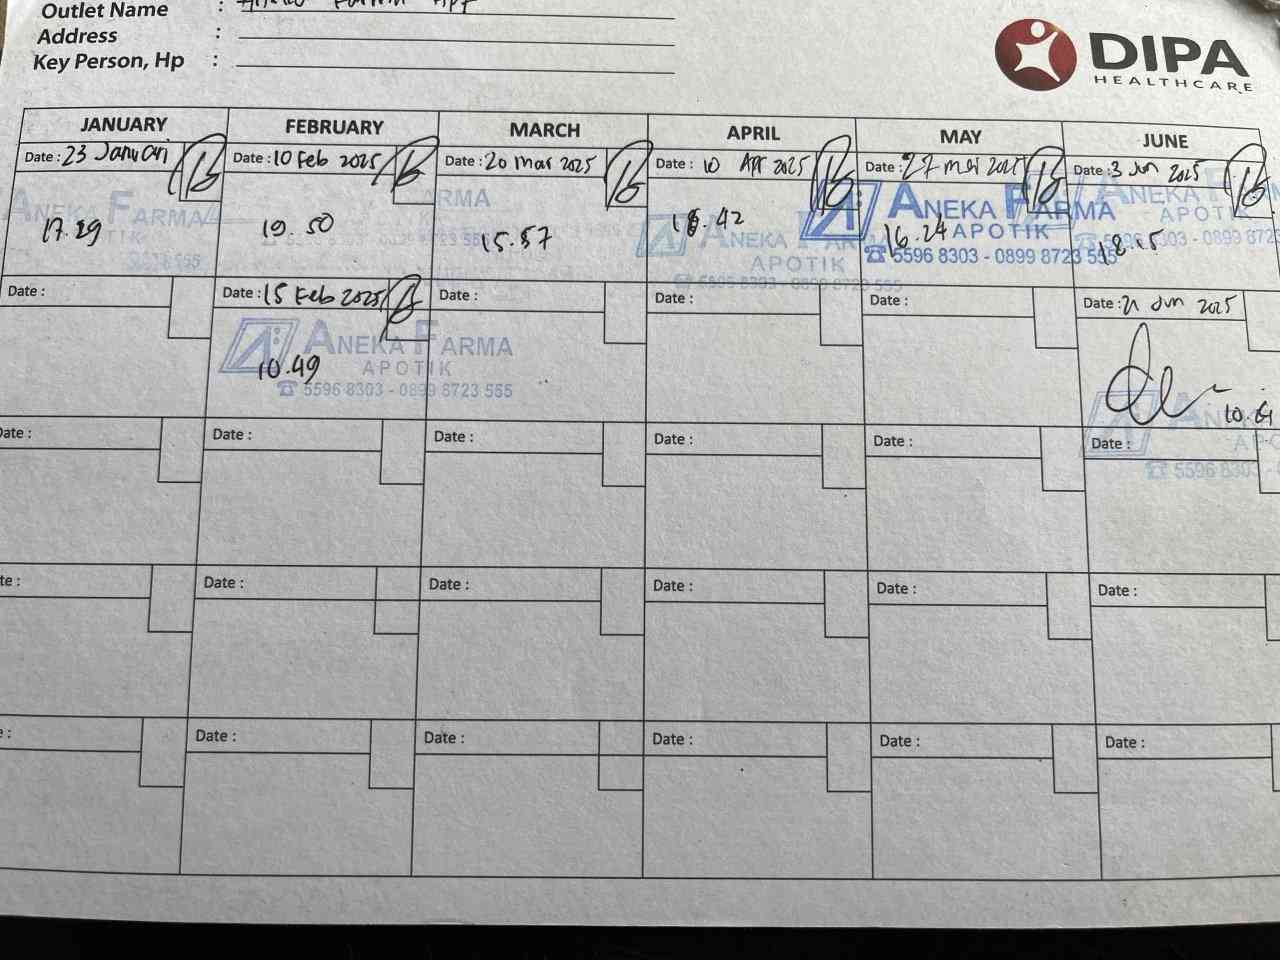 Outlet Name :
Address :
Key Person, Hp :
DIPA
HEALTHCARE
JANUARY FEBRUARY MARCH APRIL MAY JUNE
Date : 23 Januari Date : 10 Feb 2025 Date : 20 mar 2025 Date : 10 Apr 2025 Date : 27 mei 2025 Date : 3 Jun 2025
ANEKA FARMA FARMA ANEKA FARMA APOTIK ANEKA FARMA APOTIK ANEKA FARMA APOTIK
17.29 19.50 15.57 18.42 16.24 18.15
5596 8303 - 0899 8723 555
Date : Date : 15 Feb 2025 Date : Date : Date : Date : 21 Jun 2025
ANEKA FARMA
APOTIK
10.49
5596 8303 - 0899 8723 555
Date : Date : Date : Date : Date : Date :
5596 8303
Date : Date : Date : Date : Date :
Date : Date : Date : Date : Date :